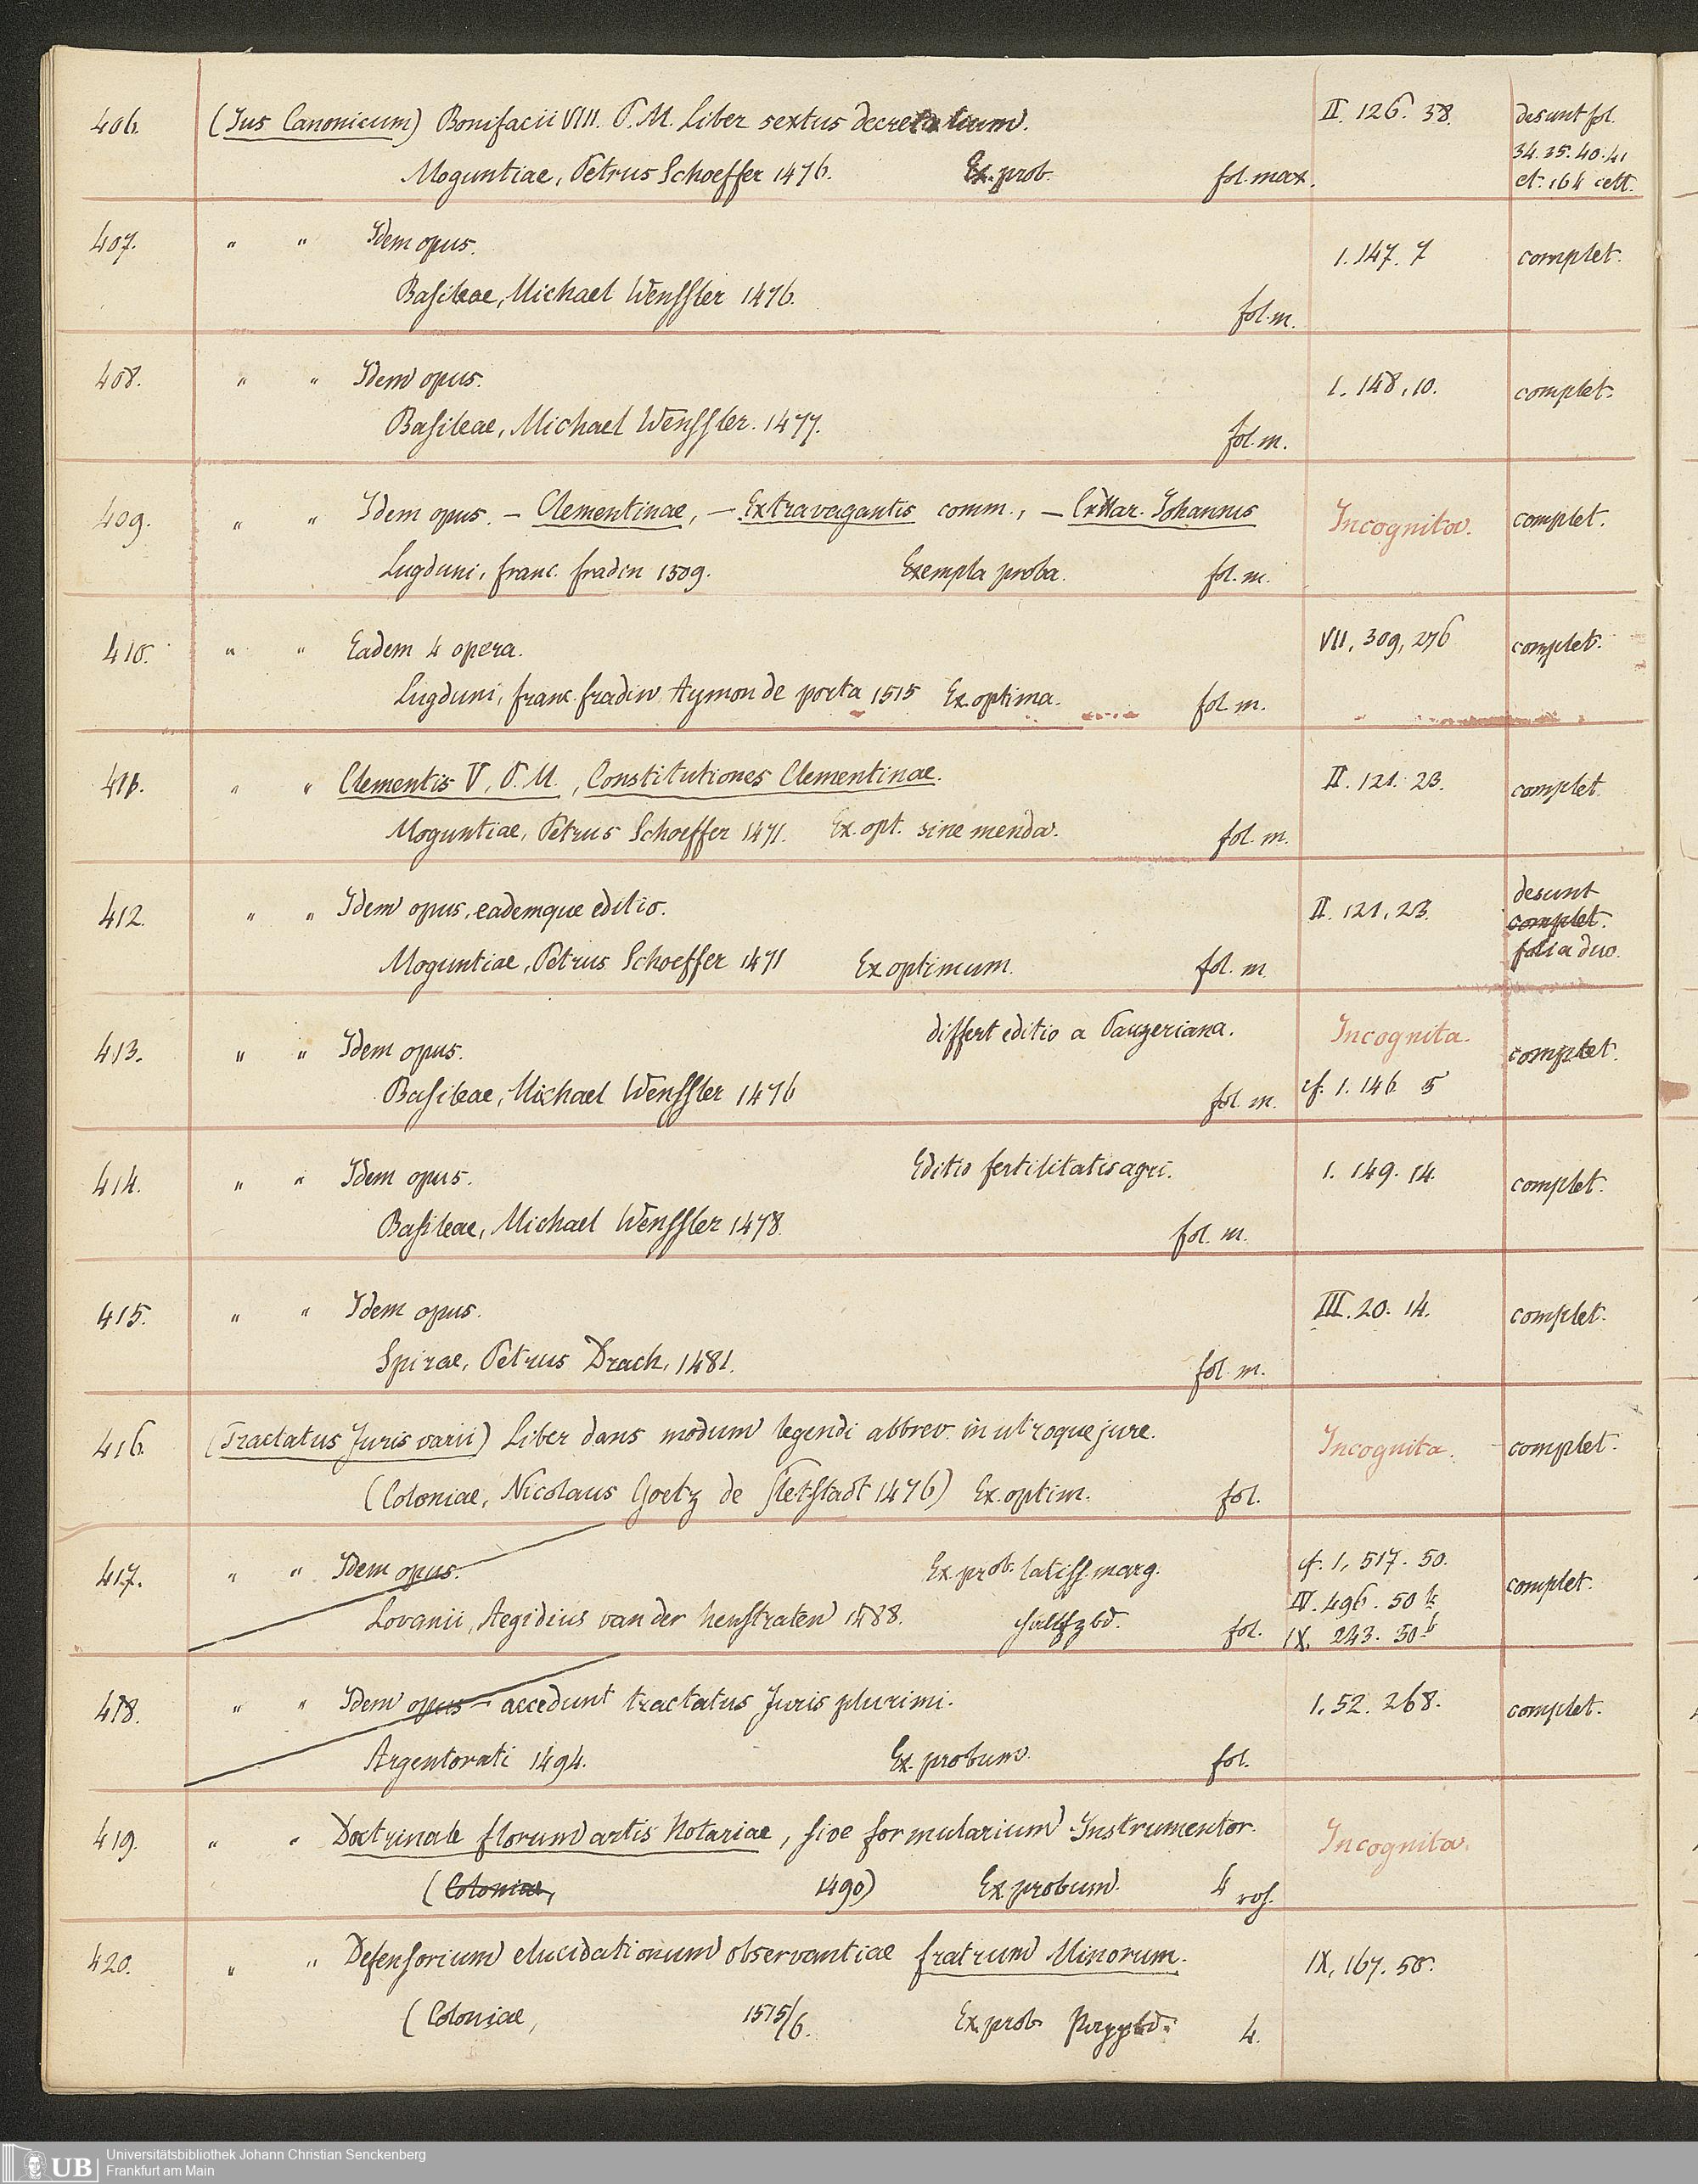 406. (Jus Canonicum) Bonifacii VIII. P. M. Liber sextus decretalium. II. 126. 38. desunt fol.
Moguntiae, Petrus Schoeffer 1476. Ex. prob. fol. max. 34. 35. 40. 41
et. 164 cett.
407. " " Idem opus. 1. 147. 7 complet.
Basileae, Michael Wenssler 1476. fol. m.
408. " " Idem opus. 1. 148, 10. complet.
Basileae, Michael Wenssler. 1477. fol. m.
409. " " Idem opus. – Clementinae, – Extravagantis comm., – Johannis Incognita. complet.
Lugduni, franc. fradin 1509. Exempla proba. fol. m.
410. " " Eadem 4 opera. VII, 309, 276 complet.
Lugduni, franc. fradin Aymon de porta 1515 Ex. optima. fol. m.
411. " " Clementis V. P. M., Constitutiones Clementinae. II. 121. 23. complet.
Moguntiae, Petrus Schoeffer 1471. Ex. opt. sine menda. fol. m.
412. " " Idem opus, eademque editio. II. 121, 23. desunt
complet.
Moguntiae, Petrus Schoeffer 1471 Ex optimum. fol. m. folia duo.
413. " " Idem opus. differt editio a Panzeriana. Incognita. complet.
Basileae, Michael Wenssler 1476 fol. m. cf. 1. 146 5
414. " " Idem opus. Editio fertilitatis agri. 1. 149. 14. complet.
Basileae, Michael Wenssler 1478 fol. m.
415. " " Idem opus. III. 20. 14. complet.
Spirae, Petrus Drach, 1481. fol. m.
416. (Tractatus Juris varii) Liber dans modum legendi abbrev. in utroque jure. Incognita. complet.
(Coloniae, Nicolaus Goetz de Sletstadt 1476) Ex. optim. fol.
417. " " Idem opus. Ex. prob. latiss. marg. cf. 1, 517. 50. complet.
IV. 496. 50 b
Lovanii, Aegidius van der henstraten 1488. fol. IX. 243. 50 b
418. " " Idem opus – accedunt tractatus Juris plurimi. 1. 52. 268. complet.
Argentorati 1494. Ex. probum. fol.
419. " " Doctrinale florum artis Notariae, sive formularium Instrumentor. Incognita.
(Coloniae, 1490) Ex probum. 4
420. " " Defensorium elucidationum observantiae fratrum Minorum. IX, 167. 58.
(Coloniae, 1515/6. Ex. prob. 4.
UB Universitätsbibliothek Johann Christian Senckenberg
Frankfurt am Main